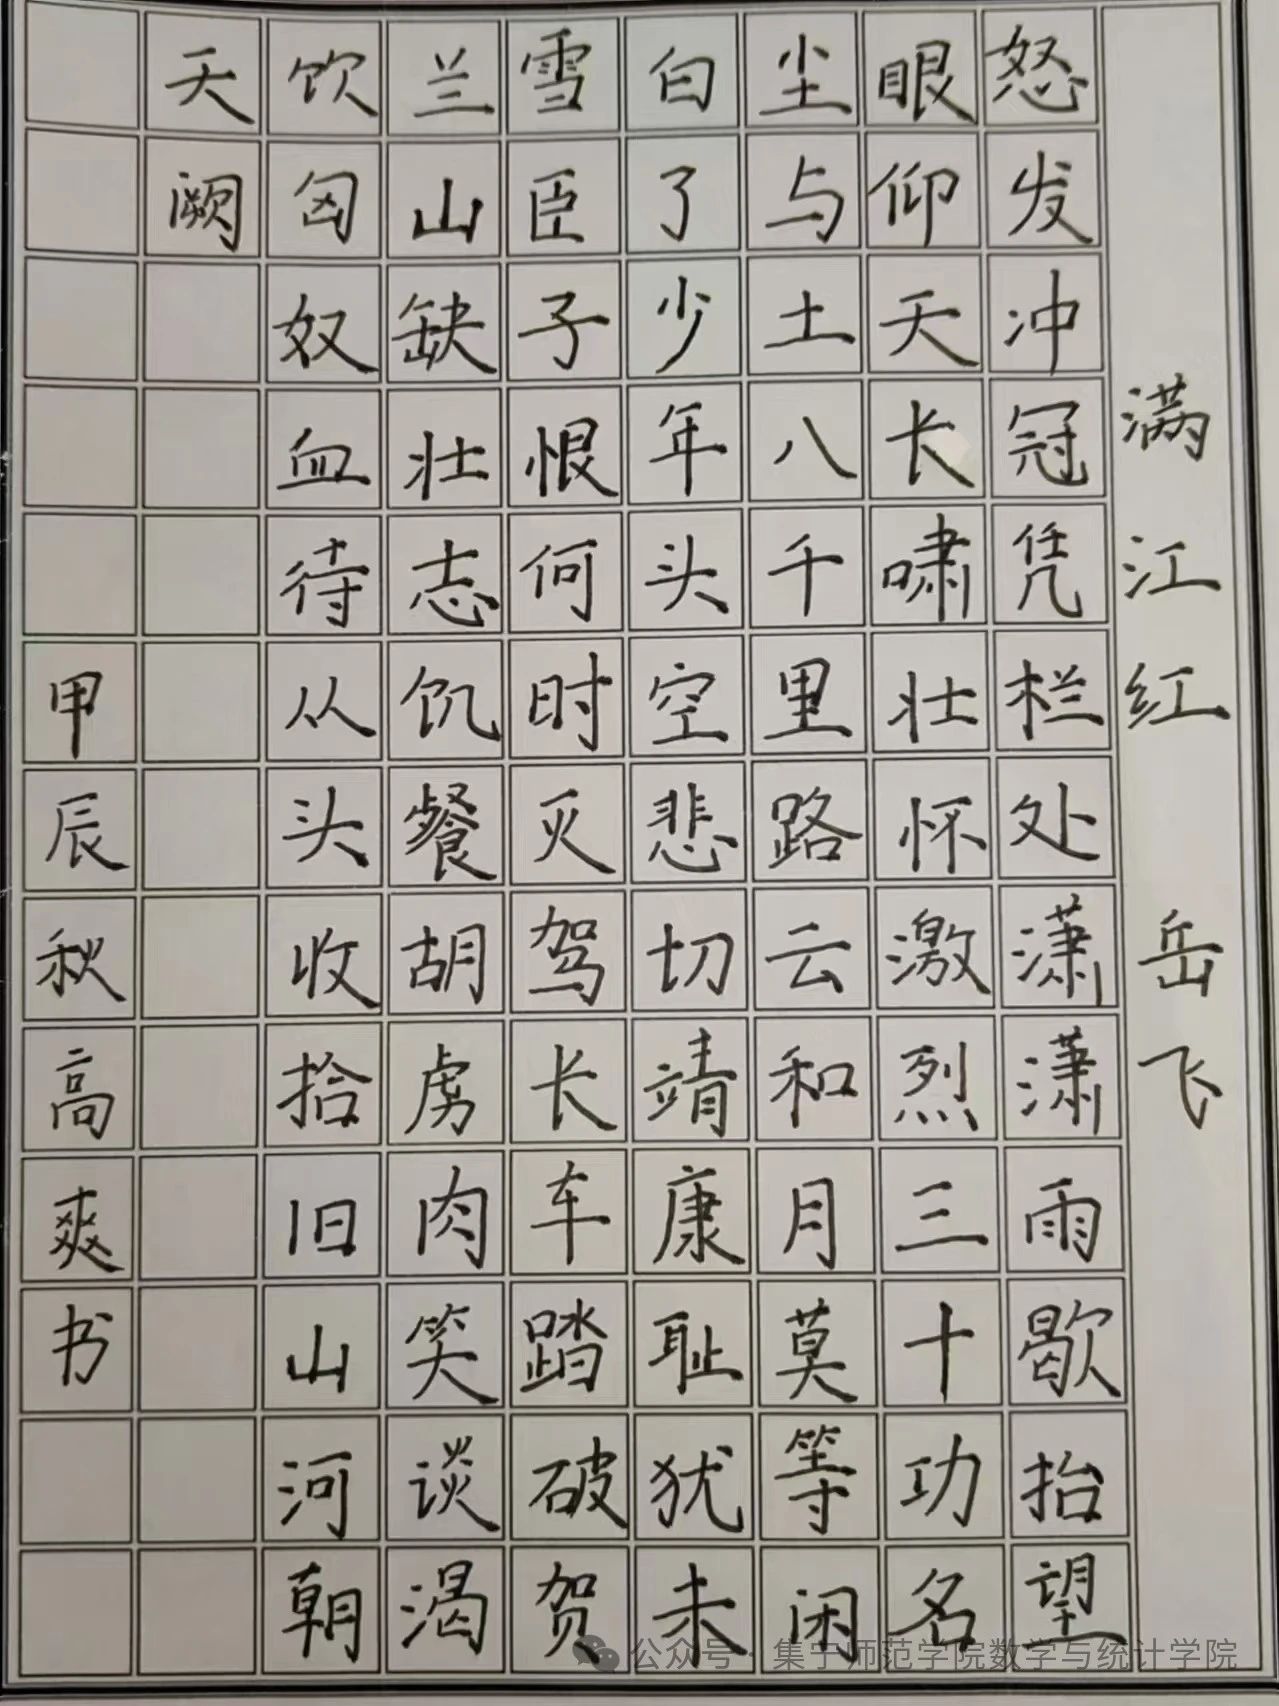 满江红 岳飞
怒发冲冠凭栏处潇潇雨歇抬望
眼仰天长啸壮怀激烈三十功名
尘与土八千里路云和月莫等闲
白了少年头空悲切靖康耻犹未
雪臣子恨何时灭驾长车踏破贺
兰山缺壮志饥餐胡虏肉笑谈渴
饮匈奴血待从头收拾旧山河朝
天阙
甲辰秋高爽书
公众号·集宁师范学院数学与统计学院